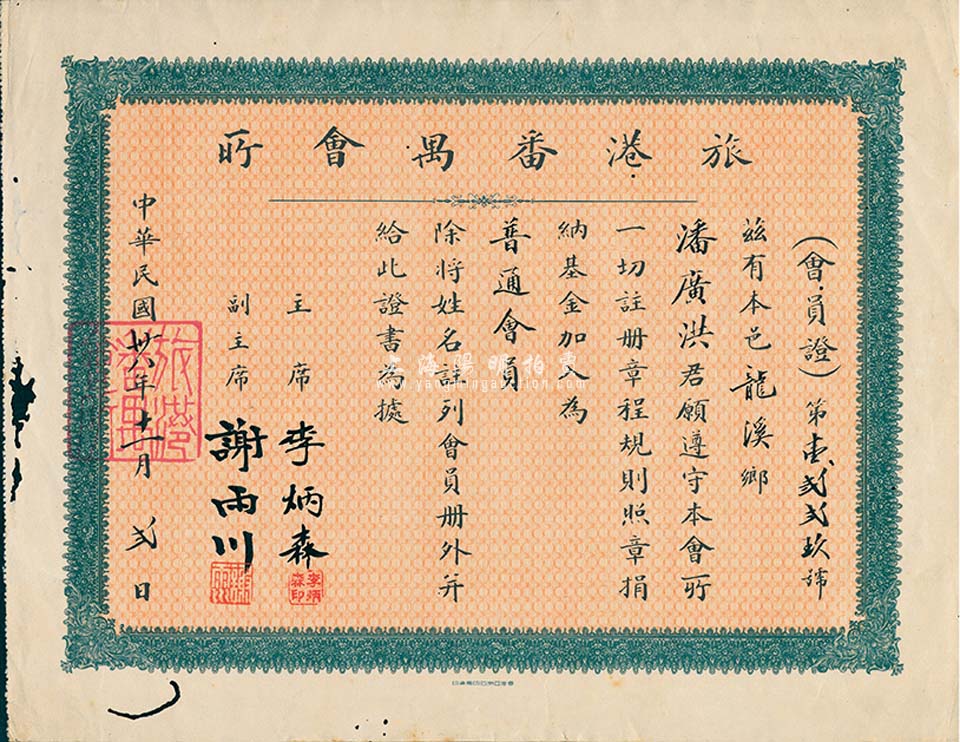 旅港番禺會所
(會員證)第壹弍弍玖號
茲有本邑龍溪鄉
潘廣洪君願遵守本會所
一切註册章程規則照章捐
納基金加入為
普通會員
除將姓名詳列會員册外并
給此證書為據
主席 李炳森
李炳森印
副主席 謝雨川
中華民國卅六年十一月弍日
旅港
上海陽明拍賣
www.yangmingauction.com